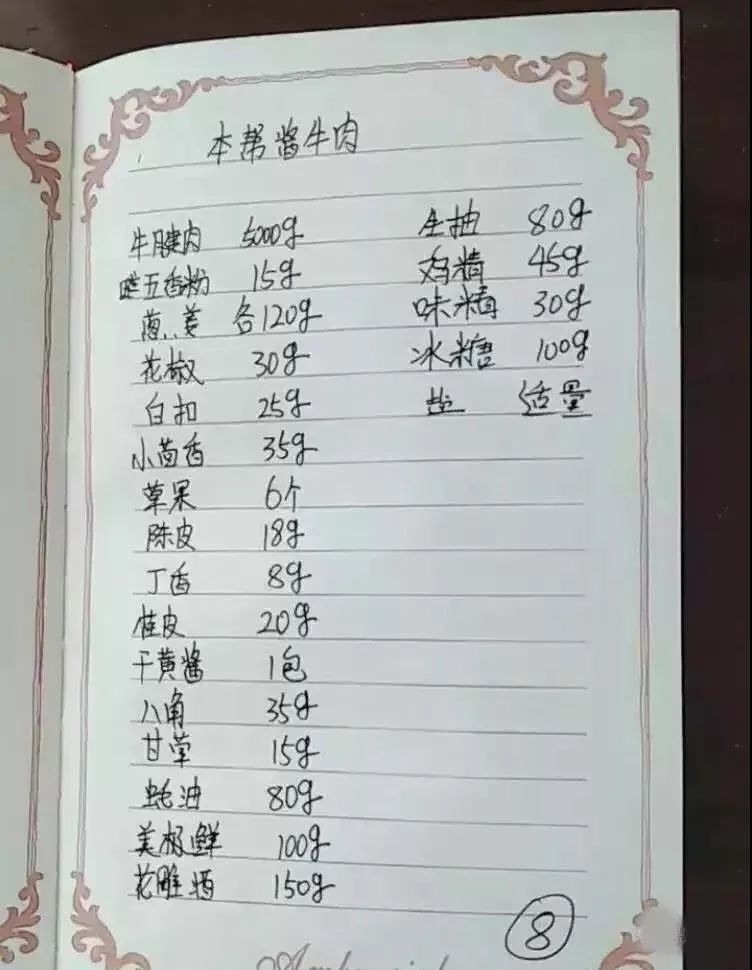 本帮酱牛肉
牛腱肉 5000g
五香粉 15g
葱、姜 各120g
花椒 30g
白扣 25g
小茴香 35g
草果 6个
陈皮 18g
丁香 8g
桂皮 20g
干黄酱 1包
八角 35g
甘草 15g
蚝油 80g
美极鲜 100g
花雕酒 150g
生抽 80g
鸡精 45g
味精 30g
冰糖 100g
盐 适量
8